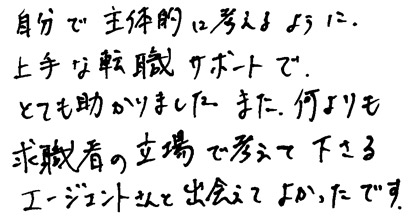 自分で主体的に考えるように、
上手な転職サポートで、
とても助かりました また、何よりも
求職者の立場で考えて下さる
エージェントさんと出会えてよかったです。